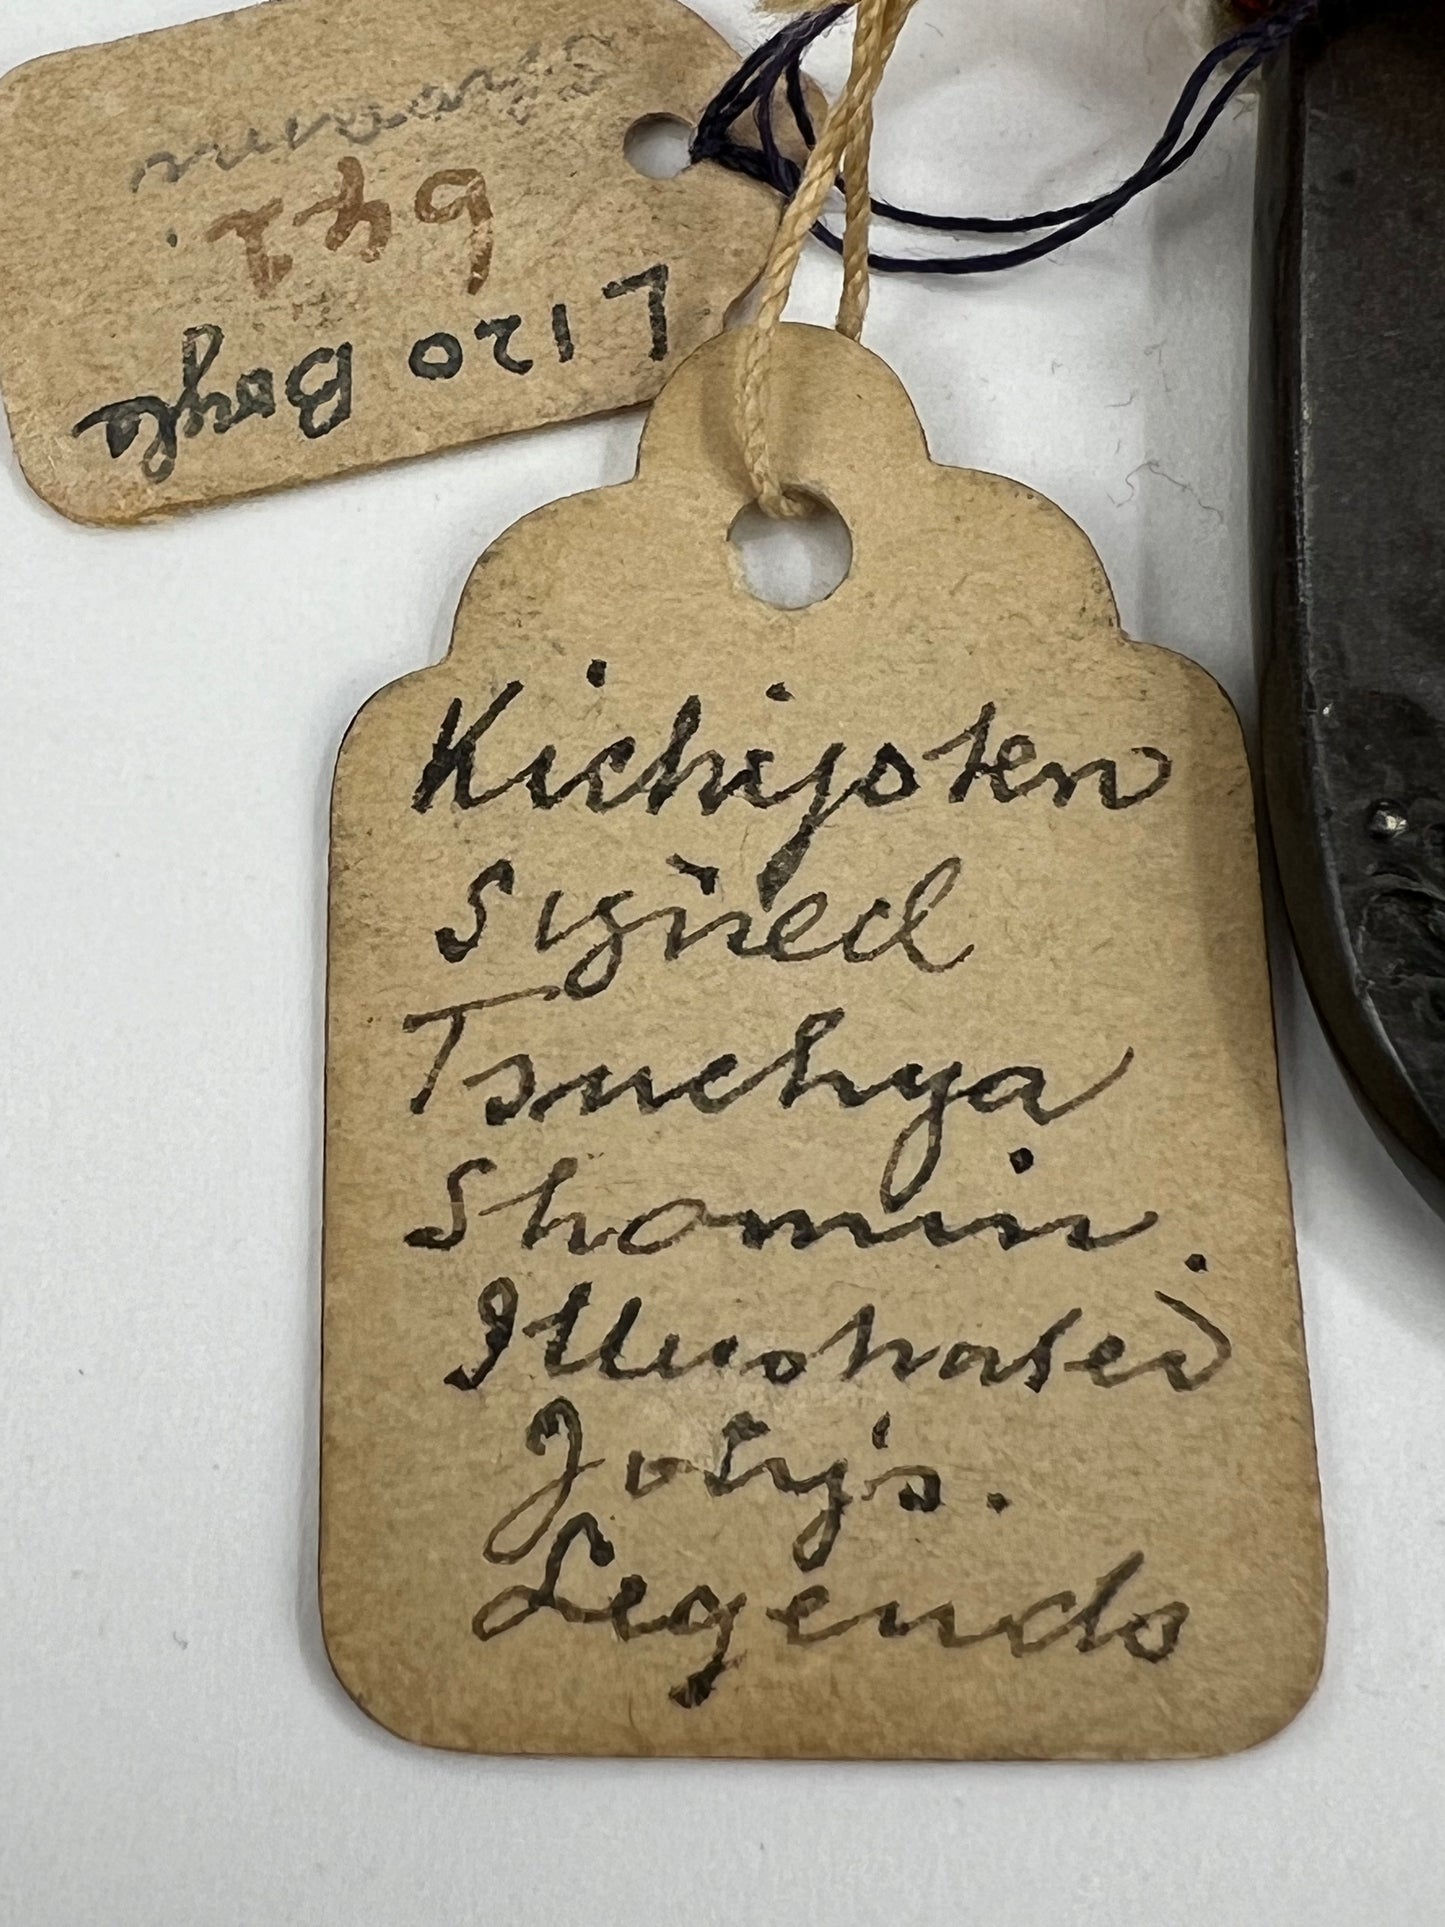 L120 Boyle
Kichijoten
Signed
Tsuchya
Shomin.
Illustrated
Joly's.
Legends